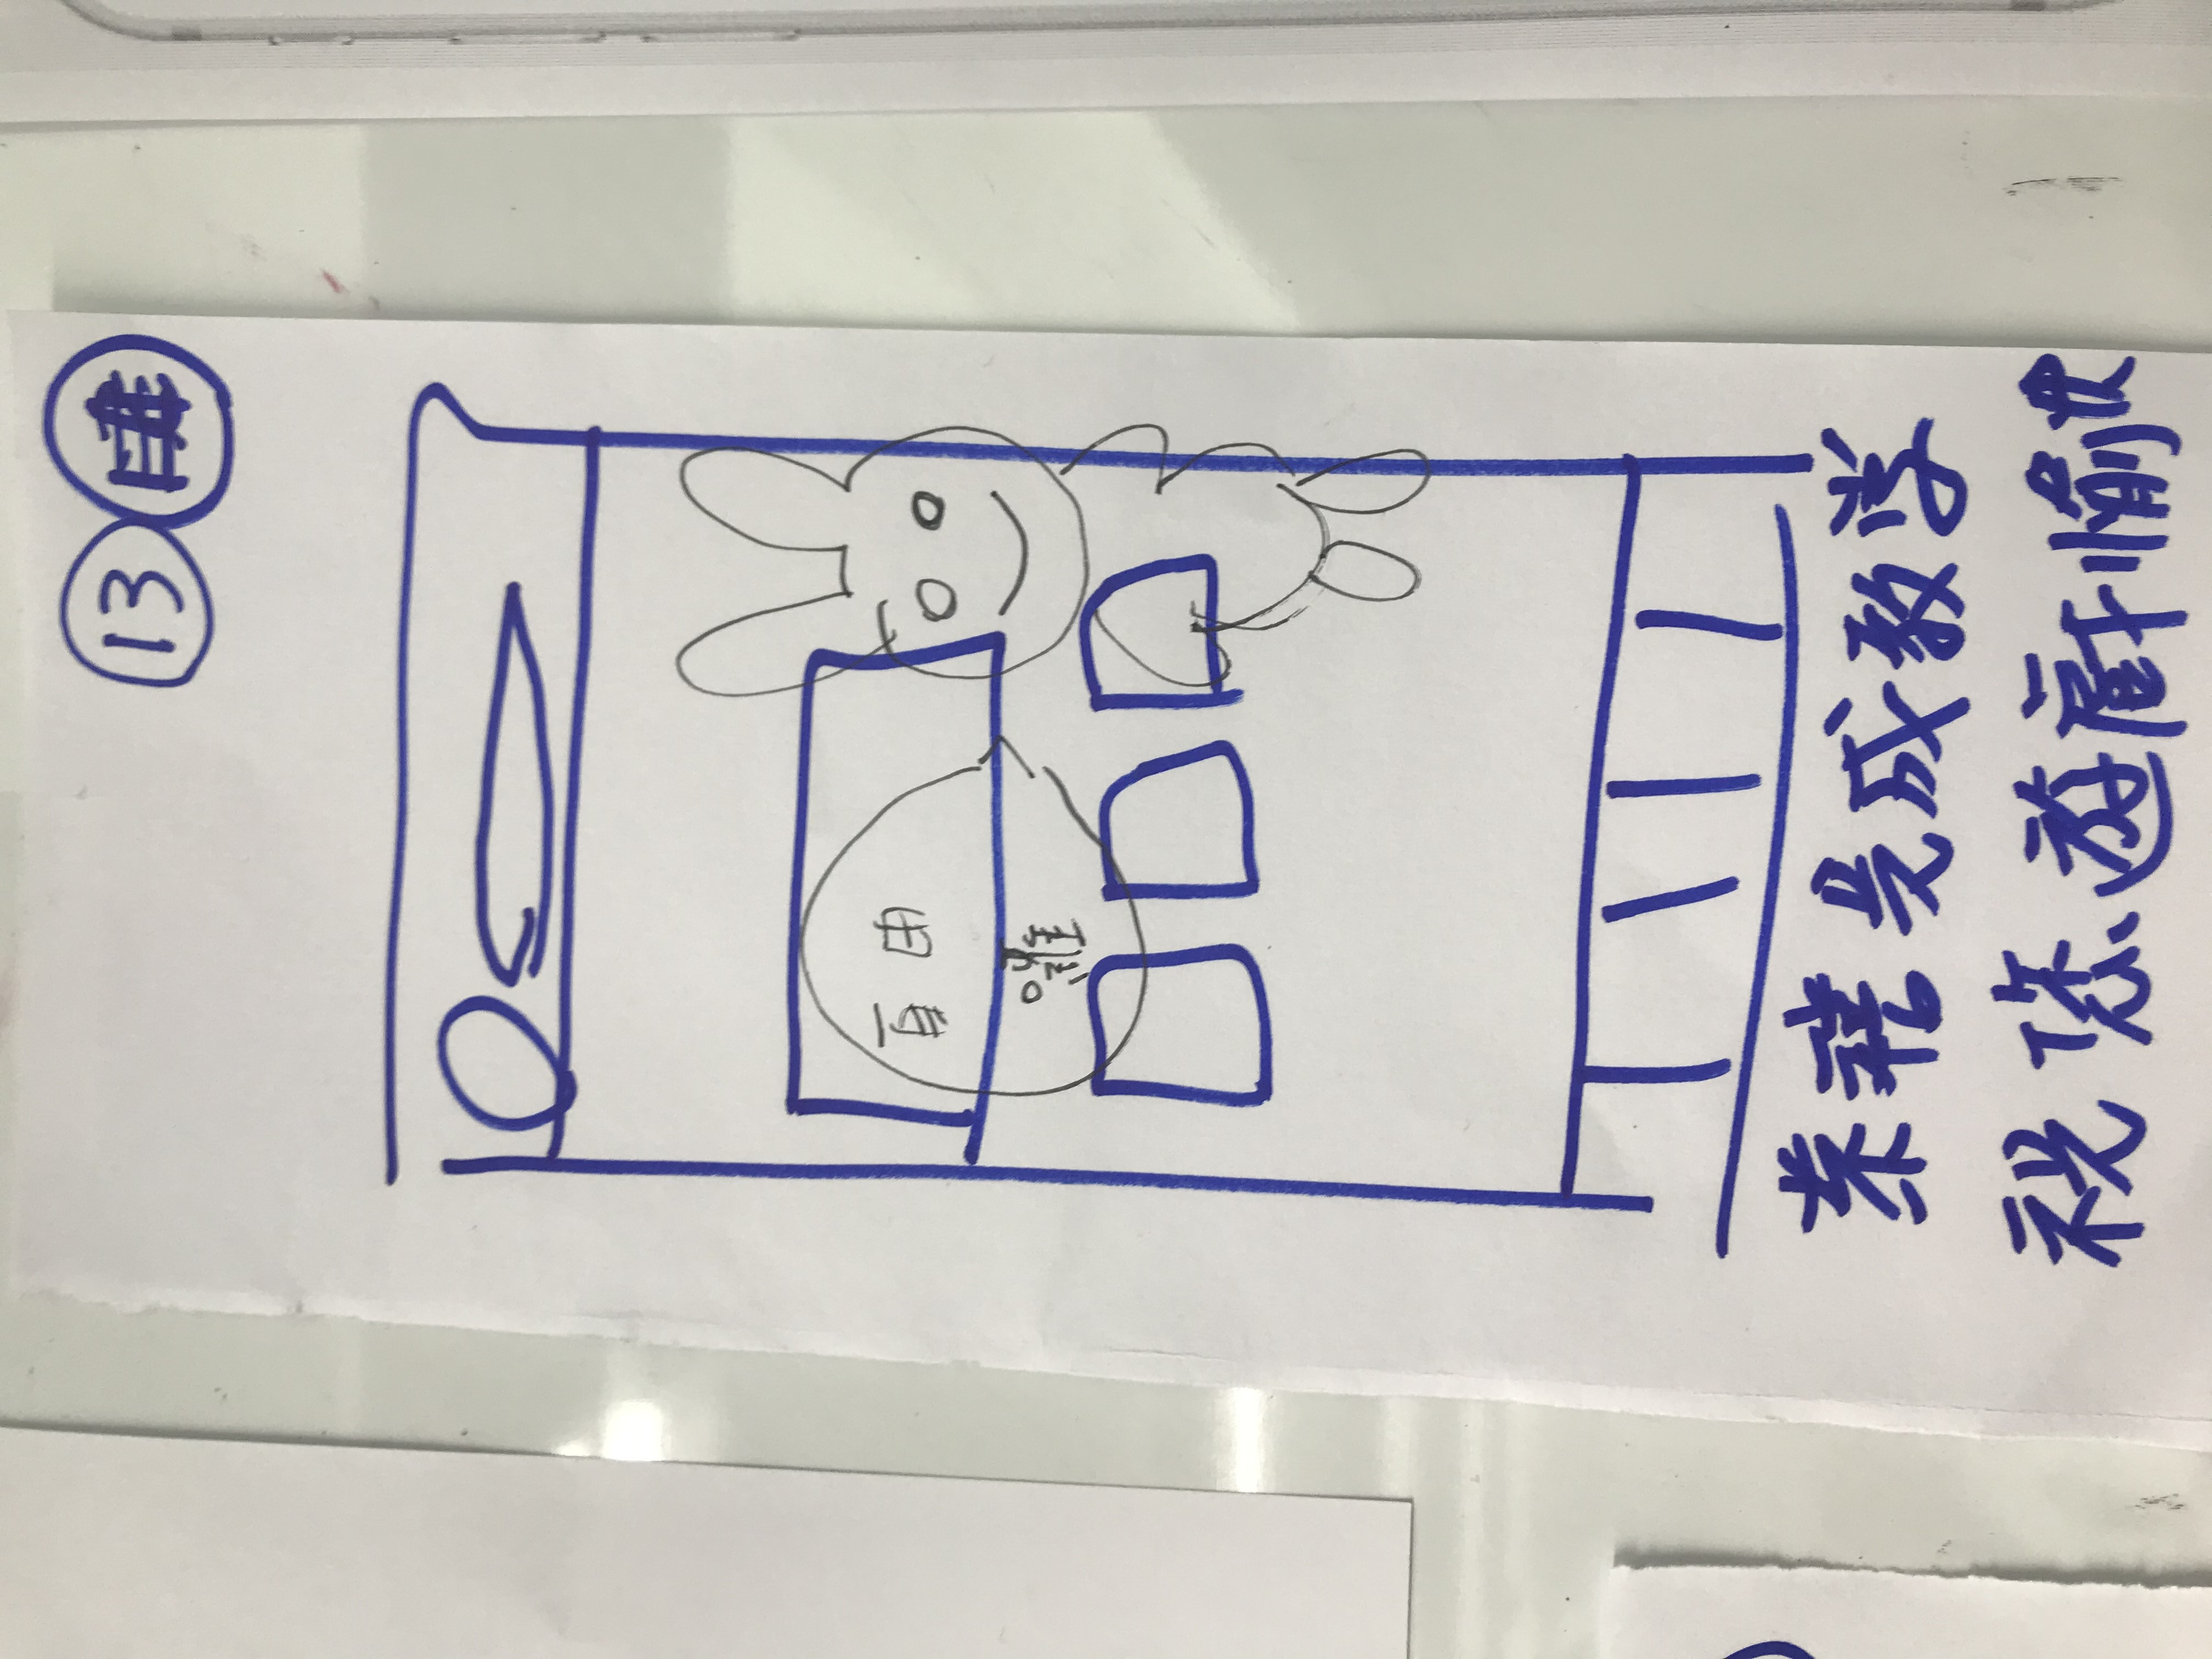 13
自由
囉
恭禧完成教学
祝您遊戲愉快